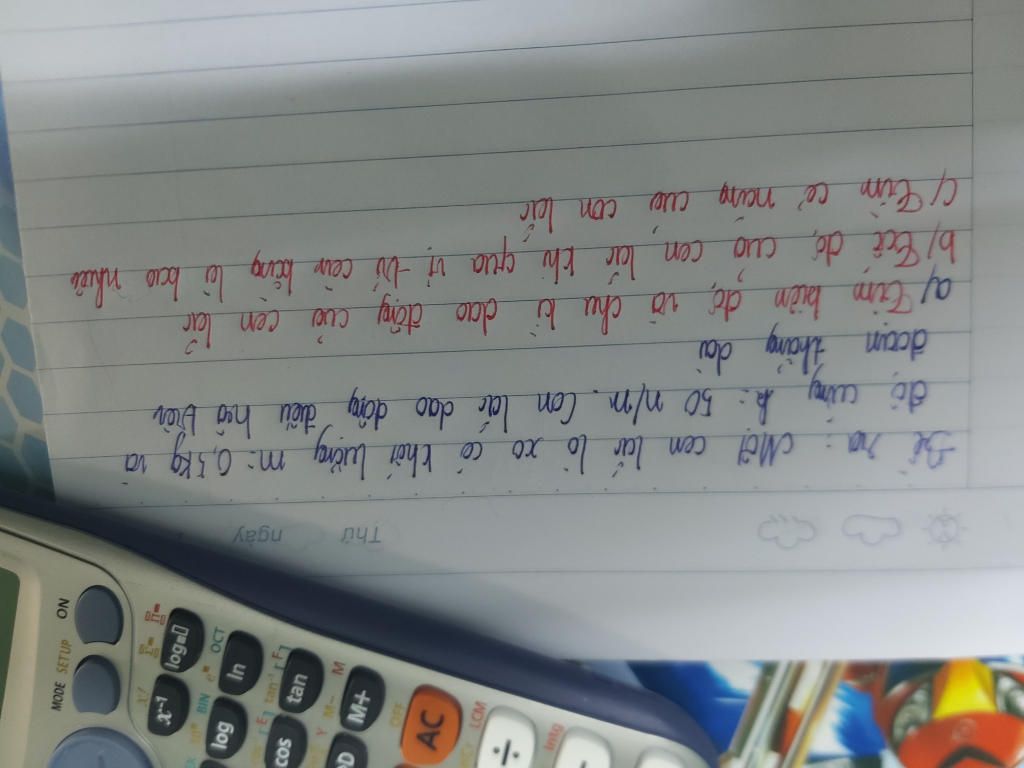 Thứ ngày
Đề ra : Một con lắc lò xo có khối lượng m = 0,3kg và
độ cứng k = 50 n/m. Con lắc dao động điều hoà trên
đoạn thẳng dài
a/ Tìm biên độ và chu kì dao động của con lắc
b/ Tốc độ của con lắc khi qua vị trí cân bằng là bao nhiêu
c/ Tìm cơ năng của con lắc
MODE SETUP ON
x! x⁻¹ log
BIN OCT
log ln
cos tan
tan⁻¹
M M+
M-
OFF AC
LCM
÷
Intg